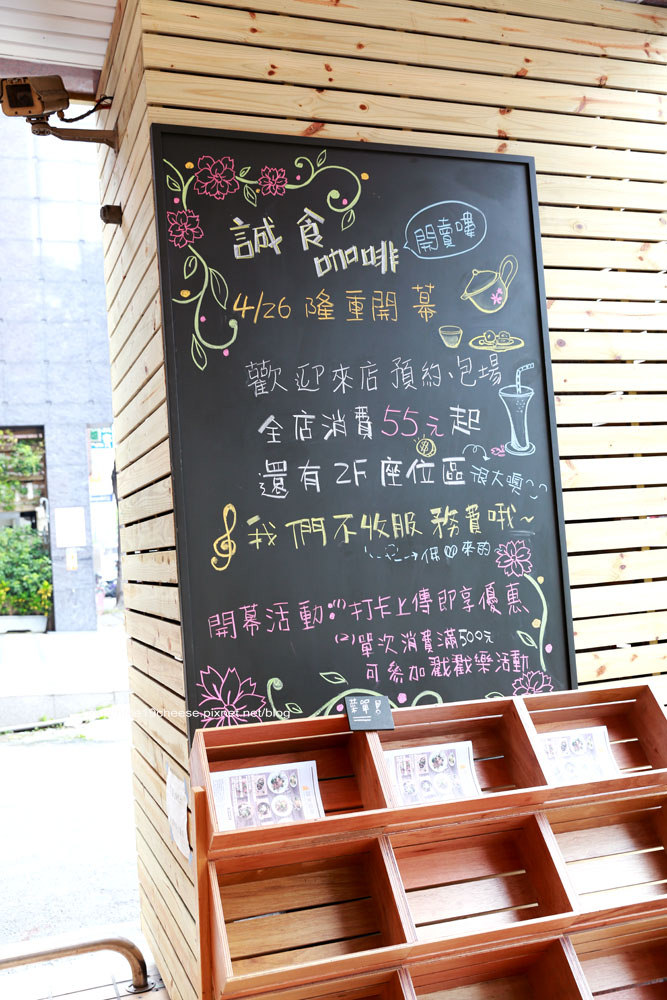 誠食
咖啡
開賣嘍
4/26 隆重開幕
歡迎來店預約、包場
全店消費55元起
還有2F座位區 很大噢
我們不收服務費哦~
開幕活動:(1)打卡上傳即享優惠
(2)單次消費滿500元
可參加戳戳樂活動
菜單
cheese.pixnet.net/blog